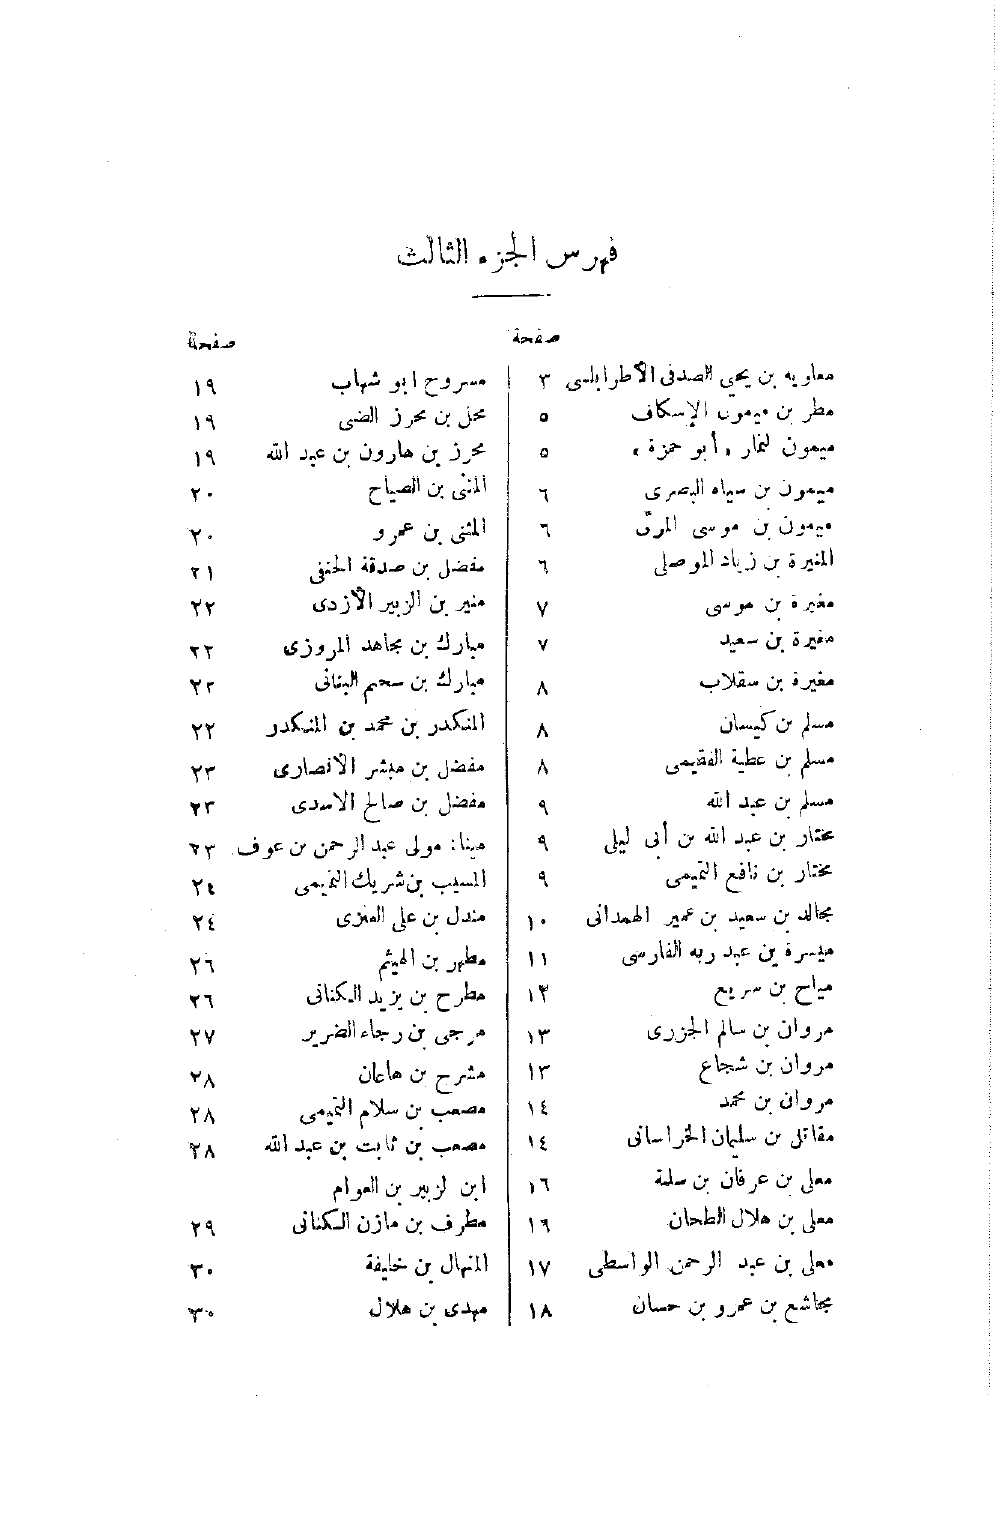 فهرس الجزء الثالث
صفحة
معاوية بن يحي الصدفى الأطرابلسى ٣
مطر بن ميمون الإسكاف ٥
ميمون لتمار « أبو حمزة » ٥
ميمون بن سياه البصرى ٦
ميمون بن موسى المرئى ٦
المغيرة بن زياد الموصلى ٦
مغيرة بن موسى ٧
مغيرة بن سعيد ٧
مغيرة بن سقلاب ٨
مسلم بن كيسان ٨
مسلم بن عطية الفقيمى ٨
مسلم بن عبد الله ٩
مختار بن عبد الله بن أبى ليلى ٩
مختار بن نافع التميمى ٩
مجالد بن سعيد بن عمير الهمدانى ١٠
ميسرة بن عبد ربه الفارسى ١١
مياح بن سريع ١٢
مروان بن سالم الجزرى ١٣
مروان بن شجاع ١٣
مروان بن محمد ١٤
مقاتل بن سليمان الخراسانى ١٤
معلى بن عرفان بن سلمة ١٦
معلى بن هلال الطحان ١٦
معلى بن عبد الرحمن الواسطى ١٧
مجاشع بن عمرو بن حسان ١٨
صفحة
مسروح ابو شهاب ١٩
محل بن محرز الضى ١٩
محرز بن هارون بن عبد الله ١٩
المثنى بن الصياح ٢٠
المثنى بن عمرو ٢٠
مفضل بن صدقة الحنفى ٢١
منير بن الزبير الأزدى ٢٢
مبارك بن مجاهد المروزى ٢٢
مبارك بن سحيم البنانى ٢٣
المنكدر بن محمد بن المنكدر ٢٢
مفضل بن مبشر الأنصارى ٢٣
مفضل بن صالح الاسدى ٢٣
مينا: مولى عبد الرحمن بن عوف ٢٣
المسيب بن شريك التميمى ٢٤
مندل بن على العنزى ٢٤
مطهر بن الهيثم ٢٦
مطرح بن يزيد الكنانى ٢٦
مرجى بن رجاء الضرير ٢٧
مشرح بن هاعان ٢٨
مصعب بن سلام التميمى ٢٨
مصعب بن ثابت بن عبد الله ٢٨
ابن لزبير بن العوام
مطرف بن مازن الكنانى ٢٩
المنهال بن خليفة ٣٠
مهدى بن هلال ٣٠